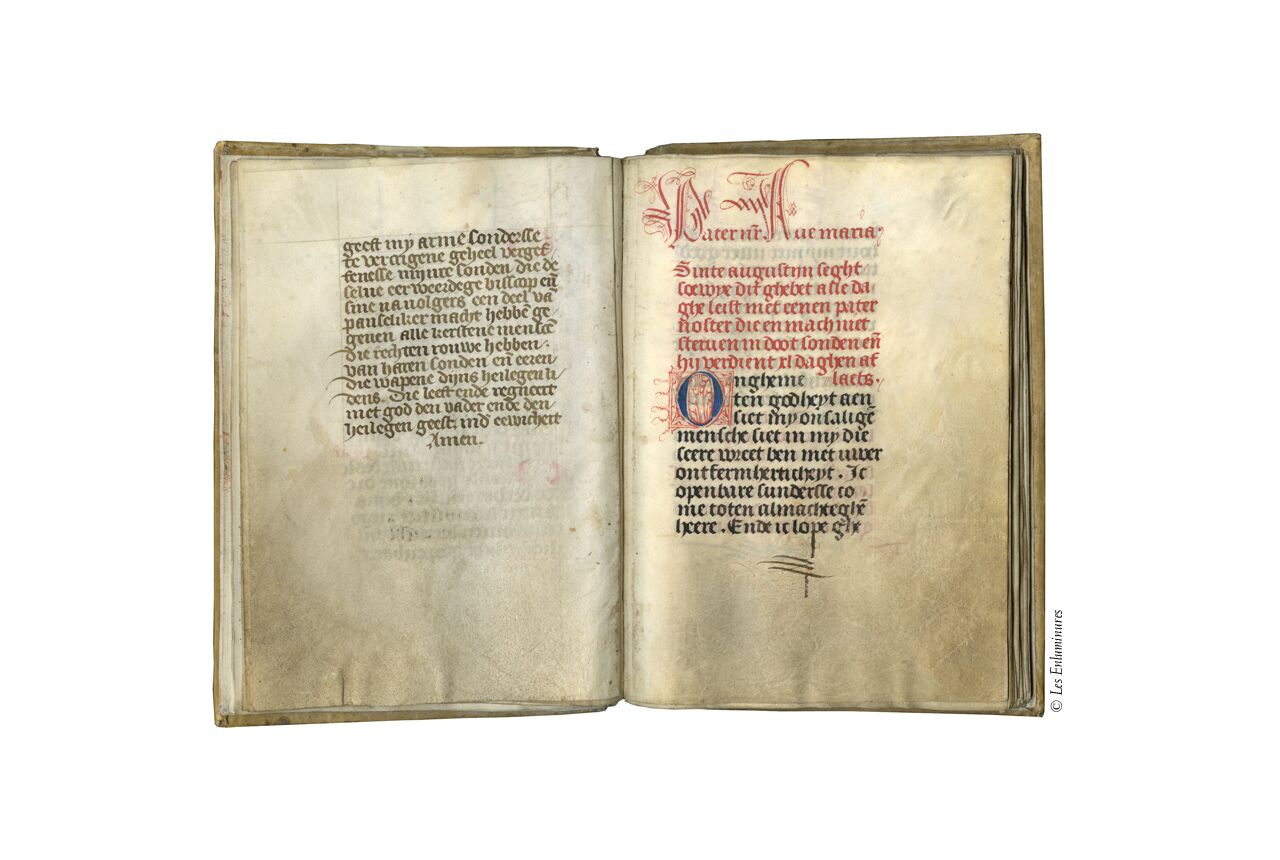 geest my arme sondersse
te vercrigene geheel verget
fenesse mijnre sonden die de
selue eer weerdege bisscop eñ
sine nauolgers een deel vā
pauseliker macht hebbē ge
geuen alle kerstene menscē
die rechten rouwe hebben.
van haren sonden eñ eeren
die wapene dijns heilegen li
dens. Die leeft ende regneert
met god den vader ende den
heilegen geest. ind eewicheit
Amen.
Pater nr̄. Aue maria
Sinte augustijn seght
soe wye dit ghebet alle da
ghe leist met eenen pater
noster die en mach niet
steruen in doot sonden eñ
hij verdient xl daghen af
laets.
Ongheme
ten godheyt aen
siet my onsaligē
mensche siet in my die
seere wreet ben met uwer
ontfermherticheyt. Ic
openbare sundersse co
me toten almachteghē
heere. Ende ic lope ghe
© Les Enluminures